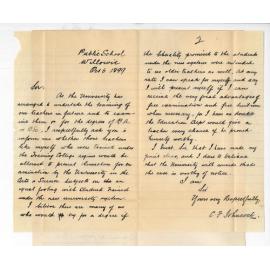 Public School
Willowie
Oct 6 1897
Sir,
As the University has
arranged to undertake the training of
our teachers in future and to examine
them or for the degree of B.A.
or B.Sc. I respectfully ask you to
inform me whether those teachers
like myself who were trained under
the Training College regime would be
allowed to present themselves for examination
by the University in the
Arts & Science subjects on an
equal footing with students trained
under the new university system.
I believe there are many of us
who would try for a degree if
2
the liberality promised to the students
under the new system were extended
to us older teachers as well. At any
rate I can speak for myself and say
I will present myself if I can
receive the very great advantages of
free examination and free tuition
when necessary, for I have no doubt
the Education Dept would give a
teacher every chance if he proved
himself worthy.
I trust Sir that I have made my
and I dare to believe
that the University will consider that
the case is worthy of notice.
I am
Sir
Yours very Respectfully,
C F Johncock